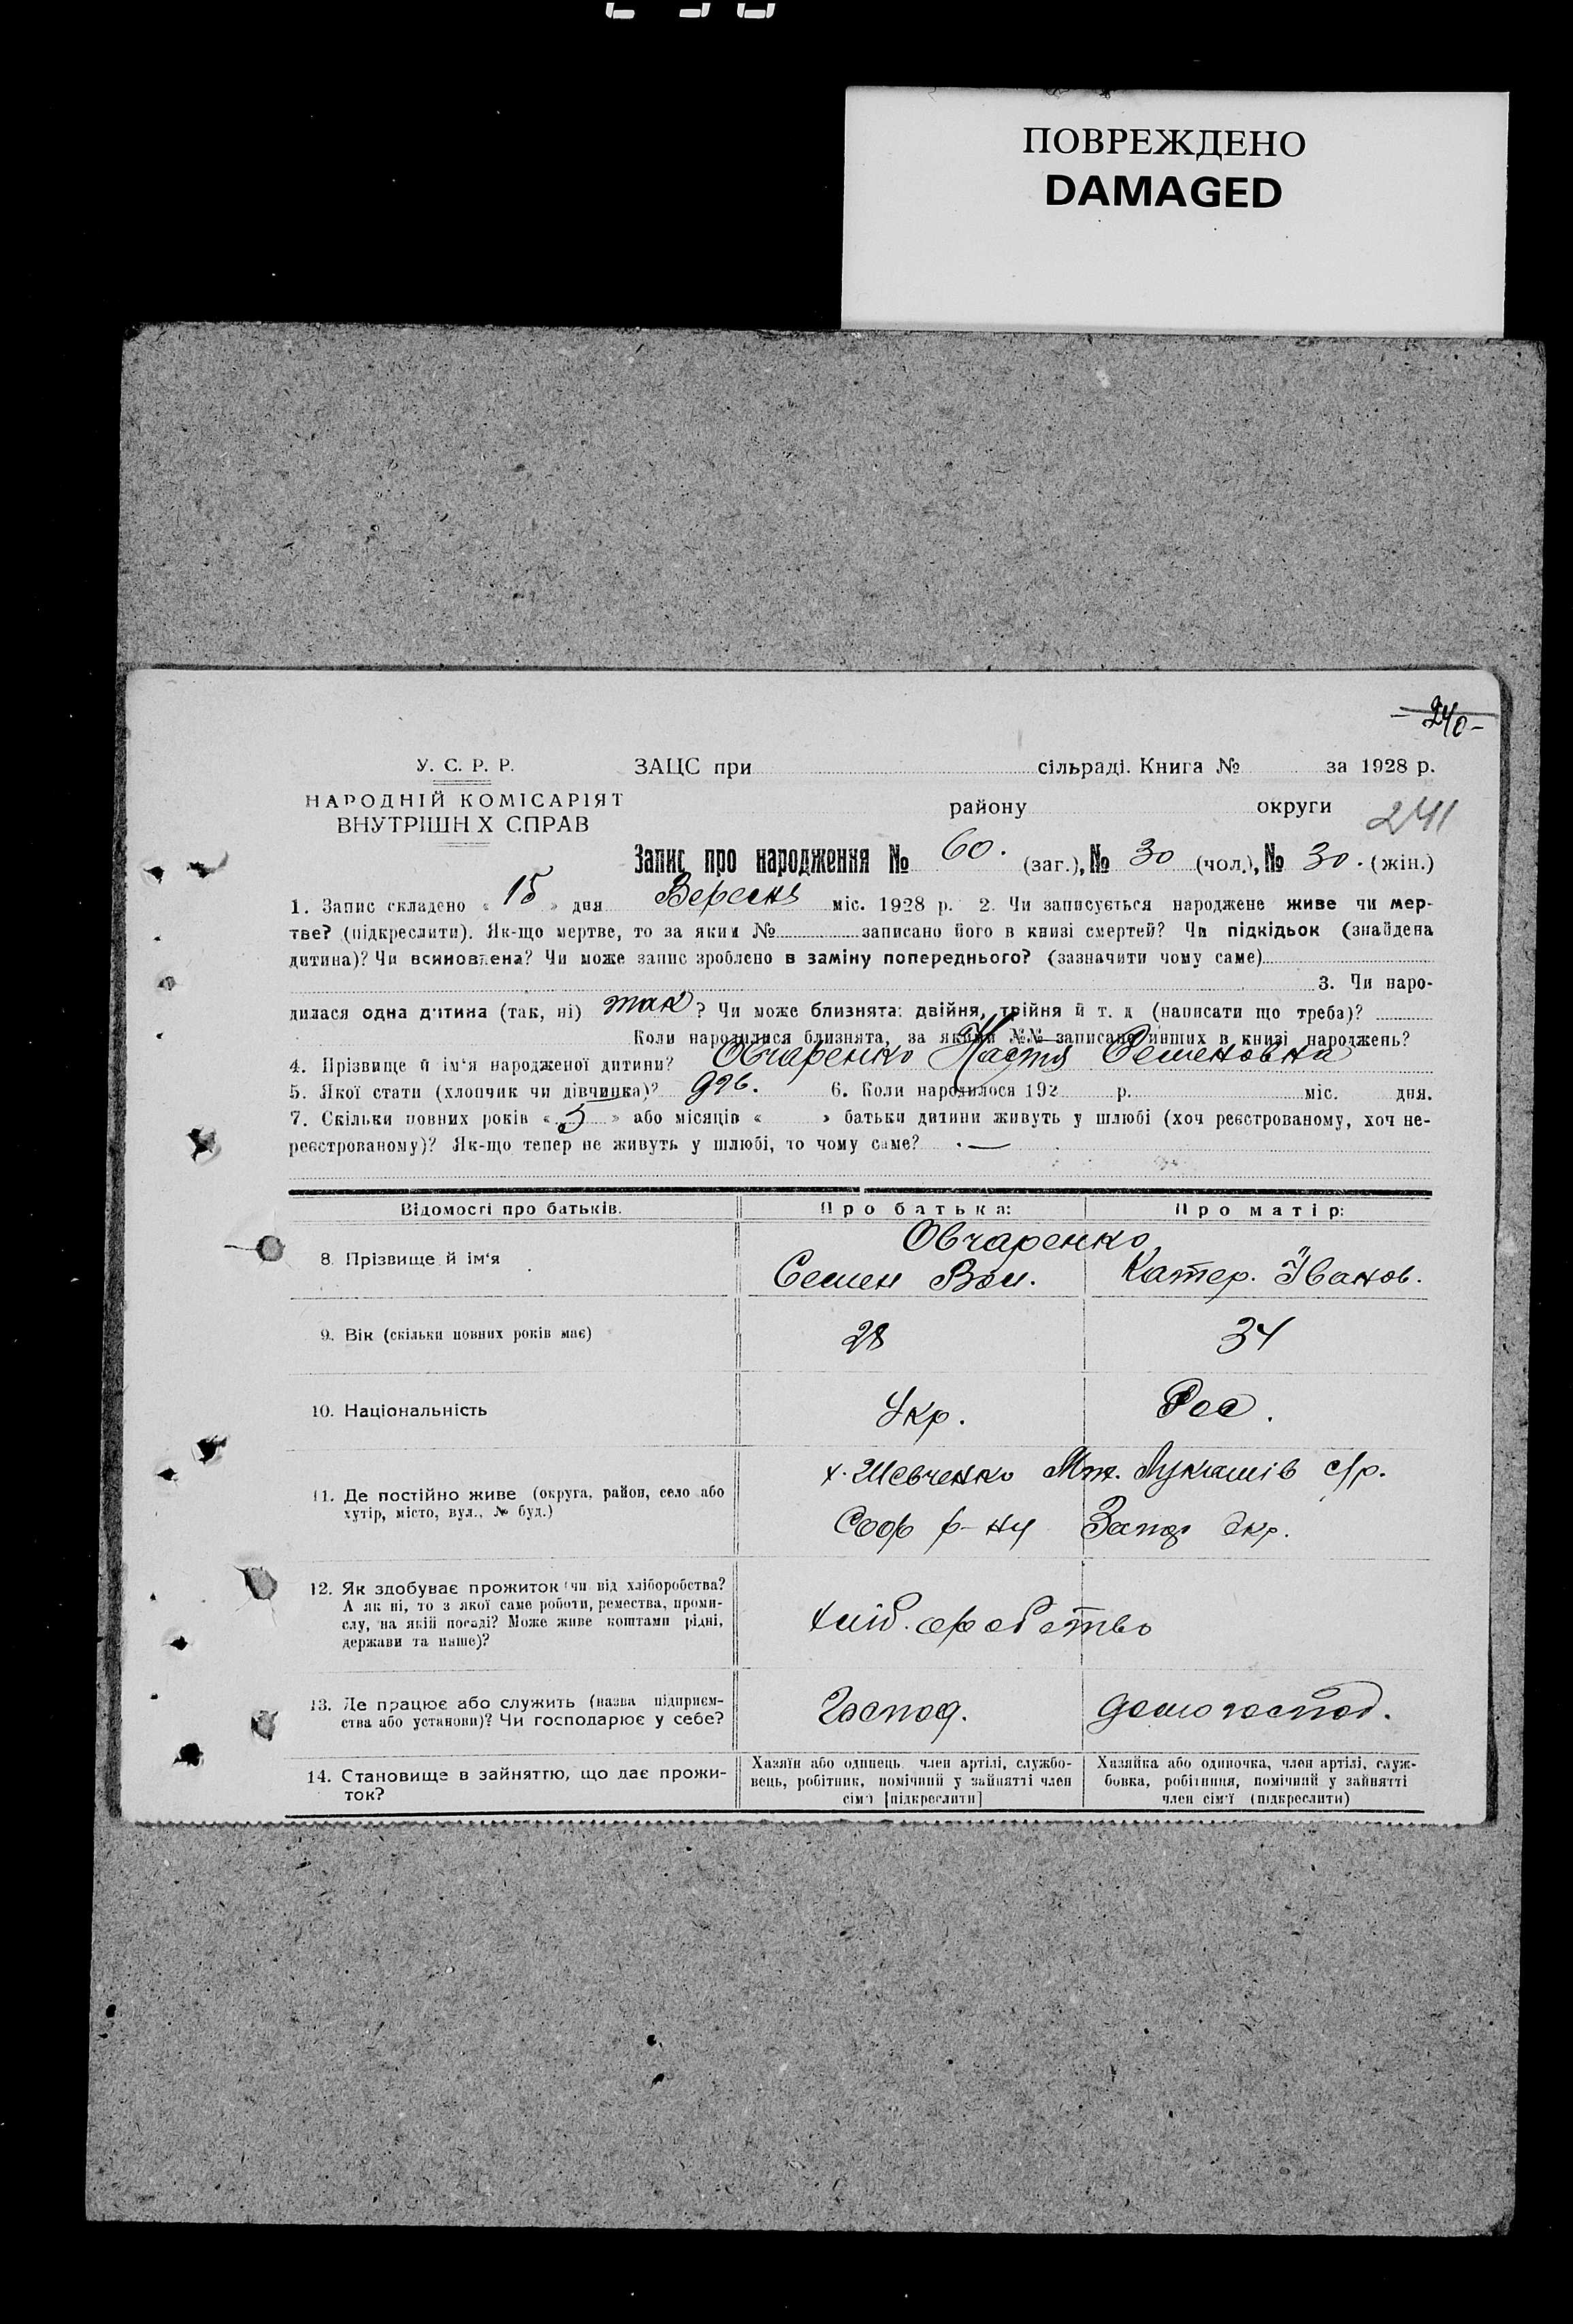 ПОВРЕЖДЕНО
DAMAGED
- 240 -
У. С. Р. Р.
ЗАЦС при сільраді. Книга № за 1928 р.
НАРОДНІЙ КОМІСАРІЯТ
ВНУТРІШН Х СПРАВ
району округи 241
Запис про народження № 60. (заг.), № 30 (чол.), № 30. (жін.)
1. Запис складено « 15 » дня Вересня міс. 1928 р. 2. Чи записується народжене живе чи мер-
тве? (підкреслити). Як-що мертве, то за яким № записано його в книзі смертей? Чи підкідьок (знайдена
дитина)? Чи всиновлена? Чи може запис зроблено в заміну попереднього? (зазначити чому саме)
3. Чи наро-
дилася одна дитина (так, ні) так? Чи може близнята: двійня, трійня й т. д (написати що треба)?
Коли народилися близнята, за якими №№ записано инших в книзі народжень?
4. Прізвище й ім'я народженої дитини? Овчаренко Настя Семеновна
5. Якої стати (хлопчик чи дівчинка)? дів. 6. Коли народилося 192 р. міс. дня.
7. Скільки повних років « 5 » або місяців « » батьки дитини живуть у шлюбі (хоч реєстрованому, хоч не-
реєстрованому)? Як-що тепер не живуть у шлюбі, то чому саме? —
Відомості про батьків. Про батька: Про матір:
Овчаренко
8. Прізвище й ім'я Семен Катер. Іванов.
9. Вік (скільки повних років має) 28 34
10. Національність Укр. Рос.
х. Шевченко Лукашів с/р.
11. Де постійно живе (округа, район, село або
хутір, місто, вул., № буд.)
Соф р-ну Запор окр.
12. Як здобуває прожиток (чи від хліборобства?
А як ні, то з якої саме роботи, ремества, проми-
слу, на якій посаді? Може живе коштами рідні,
держави та инше)?
хліборобство
13. Де працює або служить (назва підприєм-
ства або установи)? Чи господарює у себе?
Господ. домогоспод.
14. Становище в зайняттю, що дає прожи-
ток?
Хазяїн або одинець член артілі, службо-
вець, робітник, помічний у зайнятті член
сім'ї [підкреслити]
Хазяйка або одиночка, член артілі, служ-
бовка, робітниця, помічний у зайнятті
член сім'ї (підкреслити)